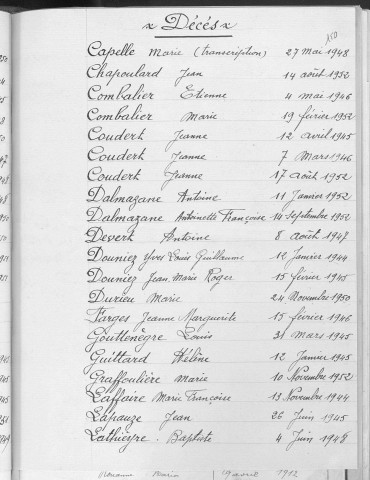 Décés
150
Capelle Marie (transcription) 27 Mai 1948
Chapoulard Jean 14 août 1952
Combalier Etienne 4 mai 1946
Combalier Marie 19 février 1952
Coudert Jeanne 12 avril 1945
Coudert Jeanne 7 Mars 1946
Coudert Jeanne 17 août 1952
Dalmazane Antoine 11 Janvier 1952
Dalmazane Antoinette Françoise 14 Septembre 1952
Devert Antoine 8 août 1947
Douniez Yves Louis Guillaume 12 Janvier 1944
Douniez Jean Marie Roger 15 février 1945
Durieu Marie 24 Novembre 1950
Farges Jeanne Marguerite 15 février 1946
Gouttenègre Louis 31 mars 1945
Guittard Hélène 12 Janvier 1945
Graffoulière Marie 10 Novembre 1952
Laffaire Marie Françoise 13 Novembre 1944
Lapauze Jean 26 Juin 1945
Lathieyre Baptiste 4 Juin 1948
Marie avril 1952